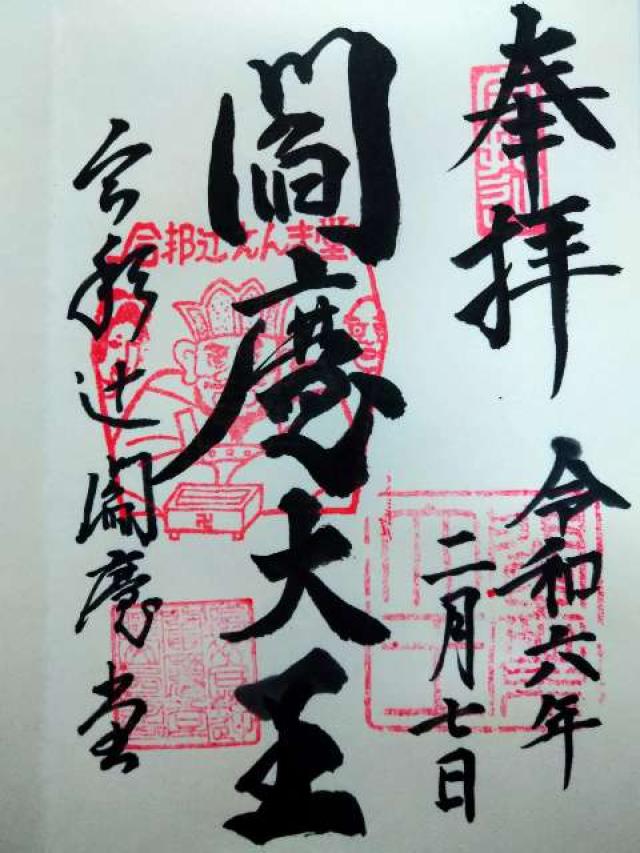 奉拝
令和六年
二月七日
閻魔大王
合邦辻えんま堂
合邦辻閻魔堂